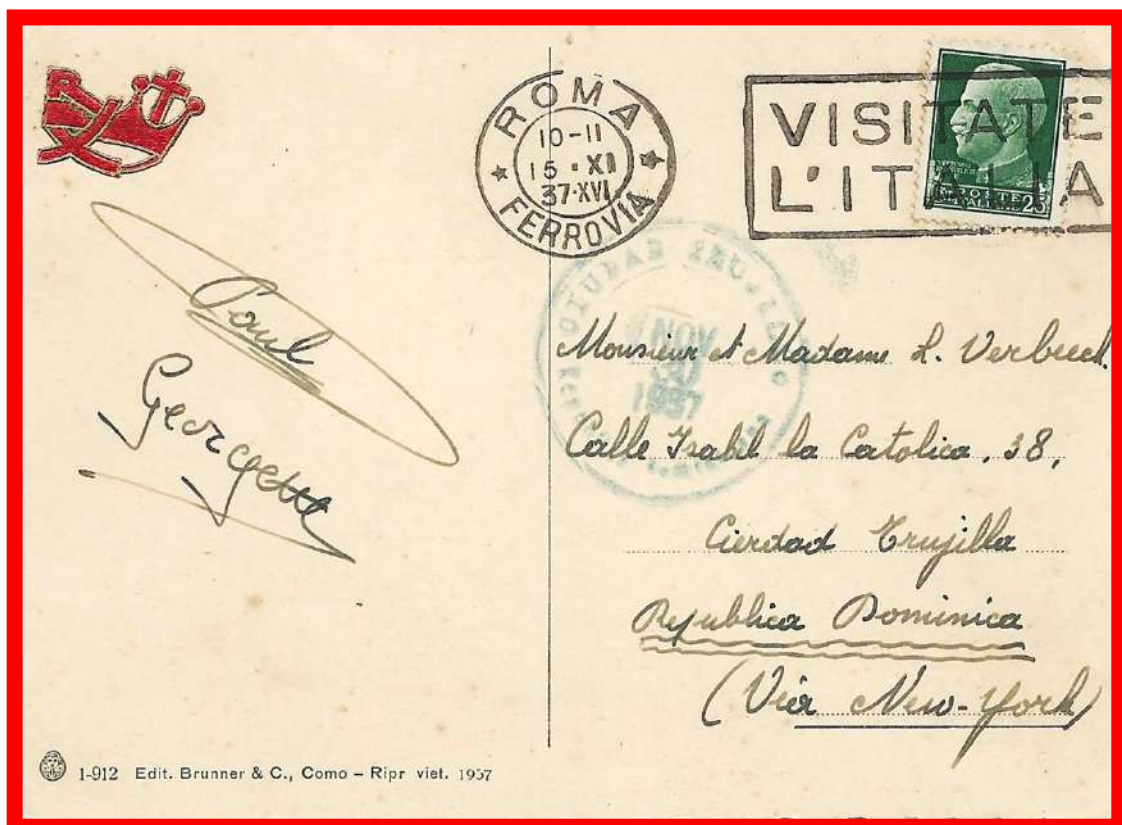 ROMA
10-11
15·XI
37·XVI
FERROVIA
VISITATE
L'ITALIA
POSTE
ITALIANE 25
NOV
1937
Paul
Georgette
Monsieur et Madame L. Verbeeck.
Calle Isabel la Catolica, 38,
Cierdad Trujilla
Republica Dominica
(Via New-York)
1-912 Edit. Brunner & C., Como – Ripr viet. 1937